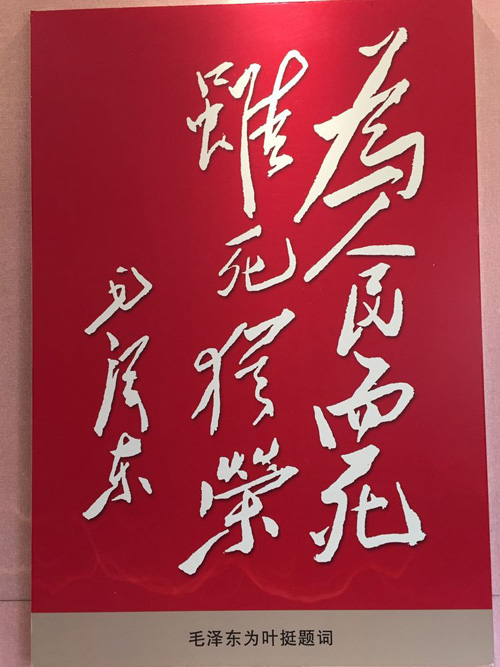 為人民而死
雖死猶榮
毛泽东
毛泽东为叶挺题词